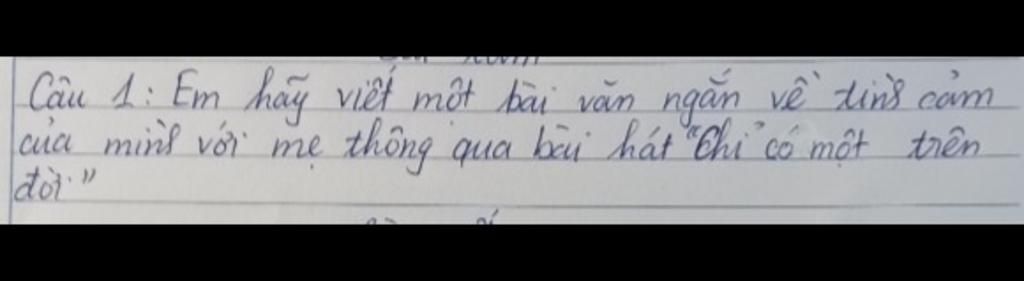 Câu 1: Em hãy viết một bài văn ngắn về tình cảm
của mình với mẹ thông qua bài hát "Chỉ có một trên
đời."